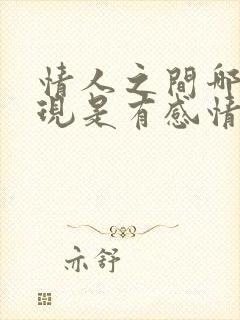 情人之間那
現是有感情
亦舒